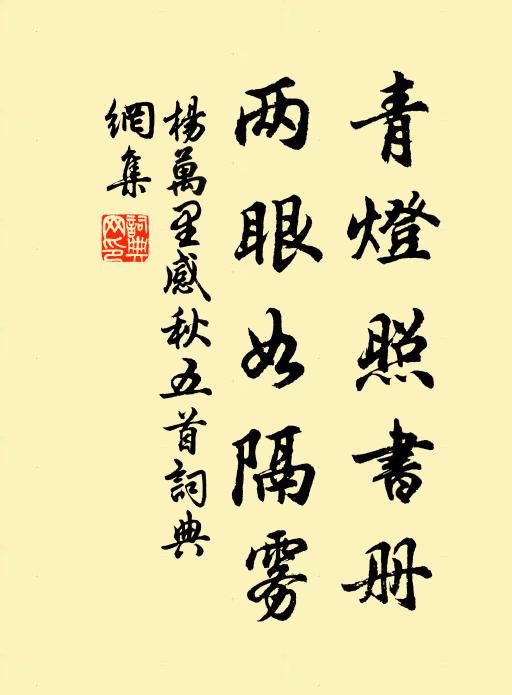 青燈照書册
两眼如隔雾
楊萬里感秋五首詞典
網集
詞典
网印